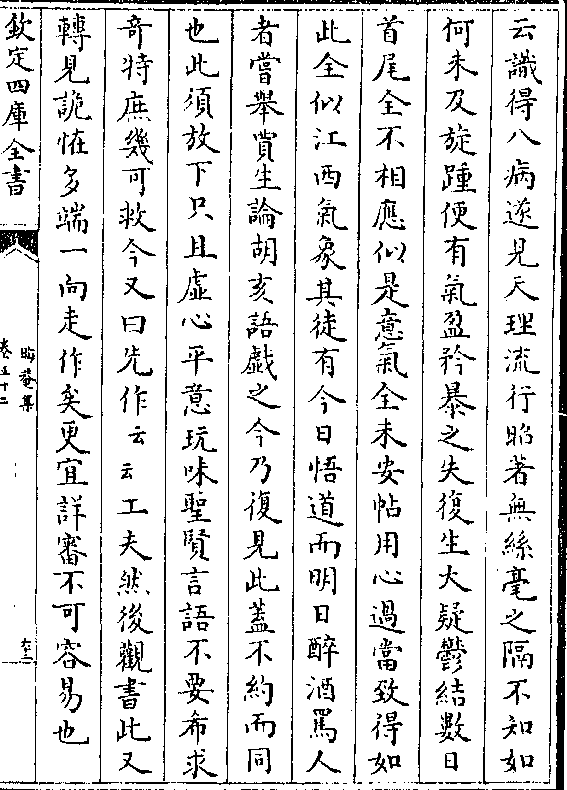 云識得八病遂見天理流行昭著無絲毫之隔不知如
何未及旋踵便有氣盈矜暴之失復生大疑鬱結數日
首尾全不相應似是意氣全未安帖用心過當致得如
此全似江西氣象其徒有今日悟道而明日醉酒罵人
者嘗舉賈生論胡亥語戲之今乃復見此蓋不約而同
也此須放下只且虚心平意玩味聖賢言語不要希求
奇特庶幾可救今又曰先作云云工夫然後觀書此又
轉見詭怪多端一向走作矣更宜詳審不可容易也
欽定四庫全書
晦菴集
卷五十二